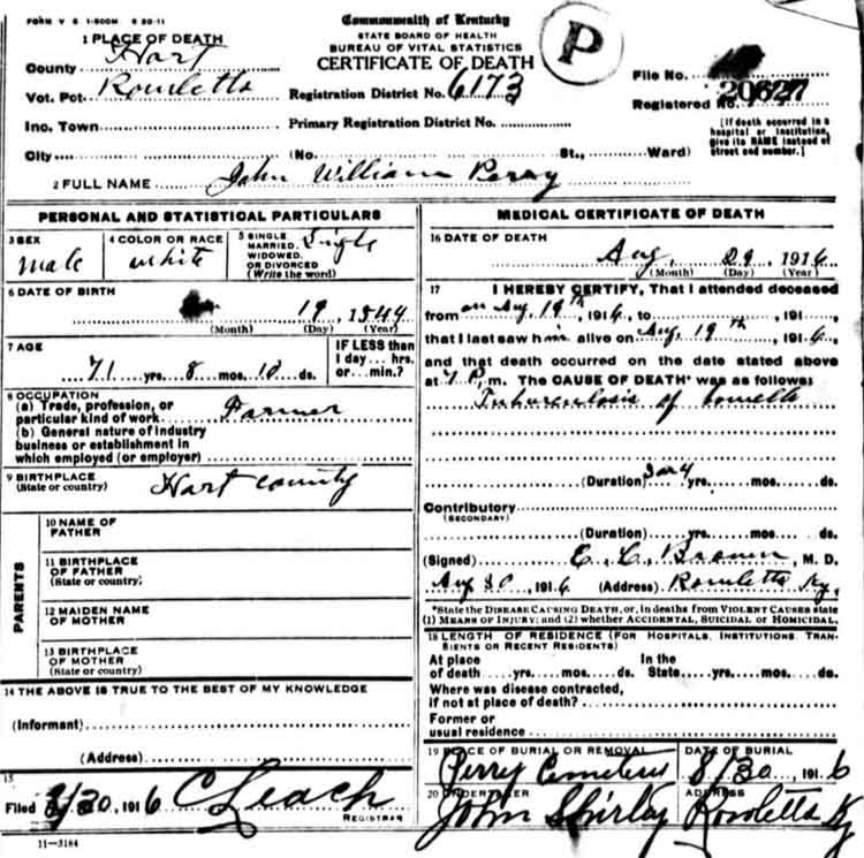 FORM V S 1-500M 6 20-11
Commonwealth of Kentucky
STATE BOARD OF HEALTH
BUREAU OF VITAL STATISTICS
CERTIFICATE OF DEATH
P
1 PLACE OF DEATH
County Hart
Vot. Pct. Rowletts
Inc. Town
City
Registration District No. 6173
Primary Registration District No.
(No. St., Ward)
File No.
Registered No. 20627
[If death occurred in a
hospital or institution,
give its NAME instead of
street and number.]
2 FULL NAME John William Perry
PERSONAL AND STATISTICAL PARTICULARS
3 SEX
male
4 COLOR OR RACE
white
5 SINGLE
MARRIED,
WIDOWED,
OR DIVORCED
(Write the word)
Single
6 DATE OF BIRTH
19, 1844
(Month) (Day) (Year)
7 AGE
71 yrs. 8 mos. 10 ds.
IF LESS than
1 day... hrs.
or... min.?
8 OCCUPATION
(a) Trade, profession, or
particular kind of work Farmer
(b) General nature of industry
business or establishment in
which employed (or employer)
9 BIRTHPLACE
(State or country)
Hart county
PARENTS
10 NAME OF
FATHER
11 BIRTHPLACE
OF FATHER
(State or country)
12 MAIDEN NAME
OF MOTHER
13 BIRTHPLACE
OF MOTHER
(State or country)
14 THE ABOVE IS TRUE TO THE BEST OF MY KNOWLEDGE
(Informant)
(Address)
15
Filed 8/30, 1916 C Leach
REGISTRAR
11-3184
MEDICAL CERTIFICATE OF DEATH
16 DATE OF DEATH
Aug. 29, 1916
(Month) (Day) (Year)
17 I HEREBY CERTIFY, That I attended deceased
from on Aug. 19th, 1916, to , 191
that I last saw him alive on Aug, 19th, 1916,
and that death occurred on the date stated above
at 7 P. m. The CAUSE OF DEATH* was as follows:
Tuberculosis of bowells
(Duration) 3 or 4 yrs. mos. ds.
Contributory
(SECONDARY)
(Duration) yrs. mos. ds.
(Signed) E. C. Brown, M. D.
Aug 30, 1916 (Address) Rowletts Ky.
*State the DISEASE CAUSING DEATH, or, in deaths from VIOLENT CAUSES state
(1) MEANS OF INJURY; and (2) whether ACCIDENTAL, SUICIDAL or HOMICIDAL.
18 LENGTH OF RESIDENCE (FOR HOSPITALS, INSTITUTIONS, TRAN-
SIENTS OR RECENT RESIDENTS)
At place In the
of death yrs. mos. ds. State yrs. mos. ds.
Where was disease contracted,
if not at place of death?
Former or
usual residence
19 PLACE OF BURIAL OR REMOVAL
Perry Cemetery
DATE OF BURIAL
8/30, 1916
20 UNDERTAKER
John Shirley
ADDRESS
Rowletts Ky